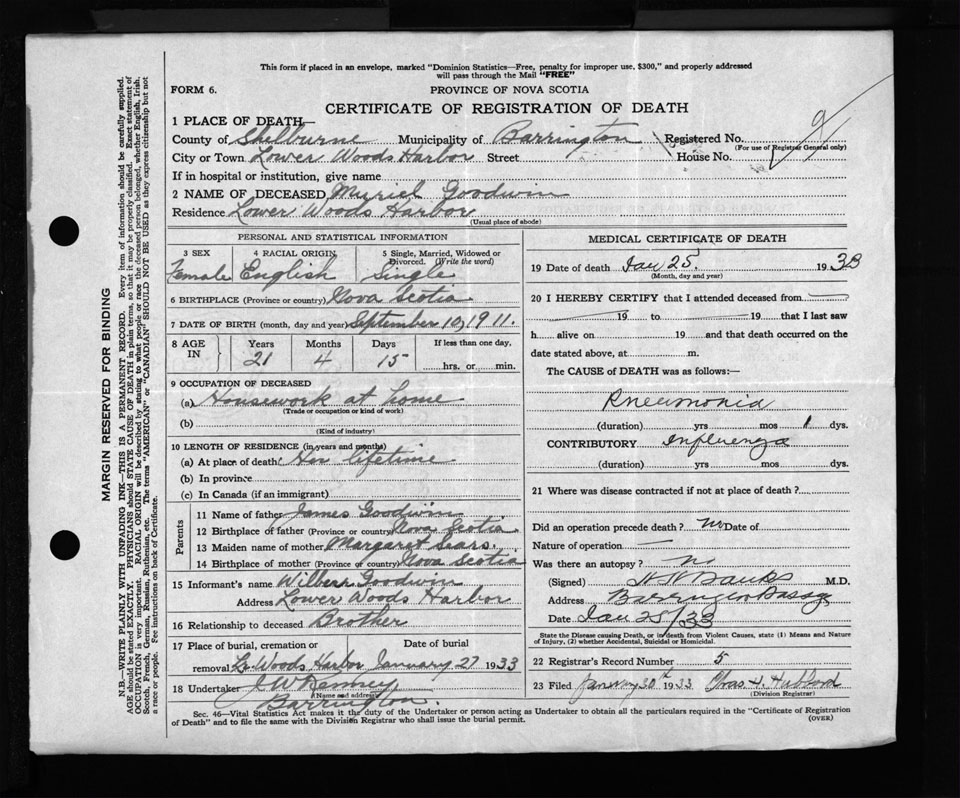 This form if placed in an envelope, marked "Dominion Statistics—Free, penalty for improper use, $300," and properly addressed
will pass through the Mail "FREE"
FORM 6.
PROVINCE OF NOVA SCOTIA
CERTIFICATE OF REGISTRATION OF DEATH
1 PLACE OF DEATH—
County of Shelburne Municipality of Barrington Registered No.
(For use of Registrar General only)
City or Town Lower Woods Harbor Street House No.
If in hospital or institution, give name
2 NAME OF DECEASED Muriel Goodwin
Residence Lower Woods Harbor
(Usual place of abode)
PERSONAL AND STATISTICAL INFORMATION
3 SEX 4 RACIAL ORIGIN 5 Single, Married, Widowed or Divorced. (Write the word)
Female English Single
6 BIRTHPLACE (Province or country) Nova Scotia
7 DATE OF BIRTH (month, day and year) September 10, 1911.
8 AGE IN Years Months Days If less than one day,
21 4 15 hrs. or min.
9 OCCUPATION OF DECEASED
(a) Housework at home
(Trade or occupation or kind of work)
(b)
(Kind of industry)
10 LENGTH OF RESIDENCE (in years and months)
(a) At place of death Her lifetime
(b) In province
(c) In Canada (if an immigrant)
Parents
11 Name of father James Goodwin
12 Birthplace of father (Province or country) Nova Scotia
13 Maiden name of mother Margaret Sears.
14 Birthplace of mother (Province or country) Nova Scotia
15 Informant's name Wilbert Goodwin
Address Lower Woods Harbor
16 Relationship to deceased Brother
17 Place of burial, cremation or Date of burial
removal L. Woods Harbor January 27 1933
18 Undertaker J W Kenney
(Name and address)
Barrington.
MEDICAL CERTIFICATE OF DEATH
19 Date of death Jan 25. 1933
(Month, day and year)
20 I HEREBY CERTIFY that I attended deceased from
19 to 19 that I last saw
h alive on 19 and that death occurred on the
date stated above, at m.
The CAUSE of DEATH was as follows:—
Pneumonia
(duration) yrs mos 1 dys.
CONTRIBUTORY Influenza
(duration) yrs mos dys.
21 Where was disease contracted if not at place of death?
Did an operation precede death? no Date of
Nature of operation —
Was there an autopsy? no
(Signed) H H Banks M.D.
Address Barrington Passage
Date Jan 25/33
State the Disease causing Death, or in death from Violent Causes, state (1) Means and Nature
of Injury, (2) whether Accidental, Suicidal or Homicidal.
22 Registrar's Record Number 5
23 Filed January 30th 1933 Chas H. Hubbard
(Division Registrar)
Sec. 46—Vital Statistics Act makes it the duty of the Undertaker or person acting as Undertaker to obtain all the particulars required in the "Certificate of Registration
of Death" and to file the same with the Division Registrar who shall issue the burial permit.
(OVER)
MARGIN RESERVED FOR BINDING
N.B.—WRITE PLAINLY WITH UNFADING INK—THIS IS A PERMANENT RECORD. Every item of information should be carefully supplied.
AGE should be stated EXACTLY. PHYSICIANS should STATE CAUSE OF DEATH in plain terms, so that it may be properly classified. Exact statement of
OCCUPATION is very important. RACIAL ORIGIN will be described by stating to what people or race the deceased person belonged, whether English, Irish,
Scotch, French, German, Russian, Ruthenian, etc. The terms "AMERICAN" or "CANADIAN" SHOULD NOT BE USED as they express citizenship but not
a race or people. See instructions on back of Certificate.